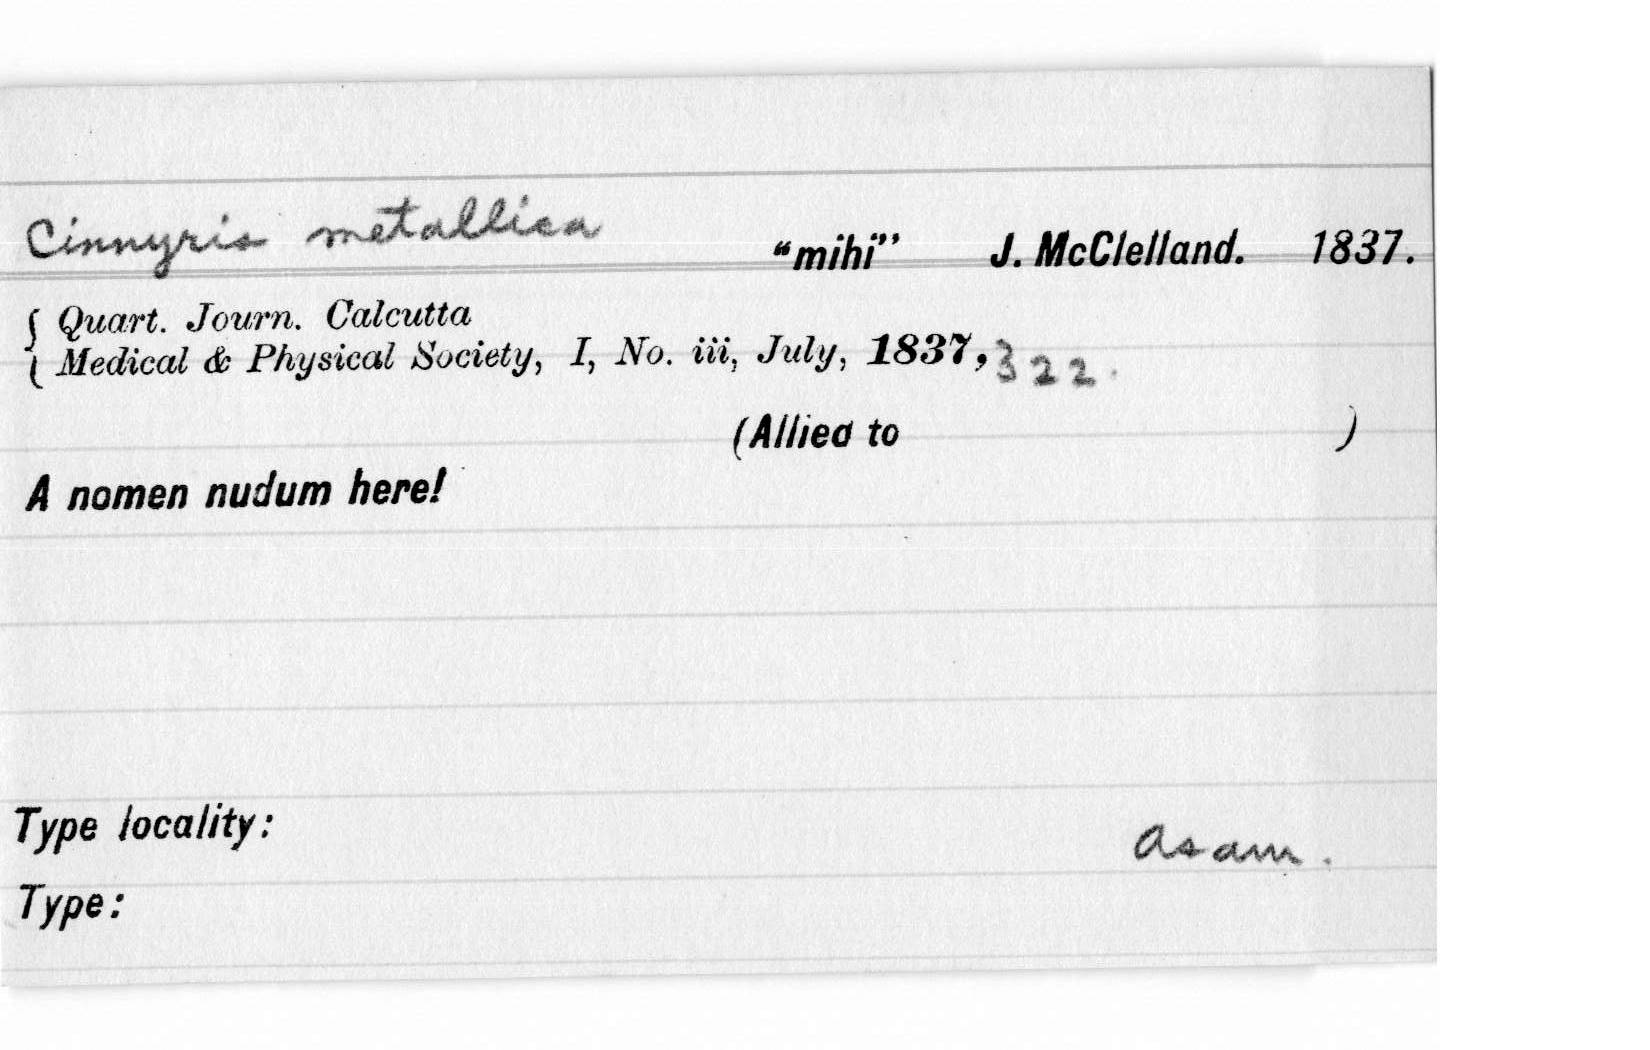 Cinnyris metallica “mihi” J. McClelland. 1837.
{ Quart. Journ. Calcutta
Medical & Physical Society, I, No. iii, July, 1837, 322.
(Allied to )
A nomen nudum here!
Type locality: Asam.
Type: